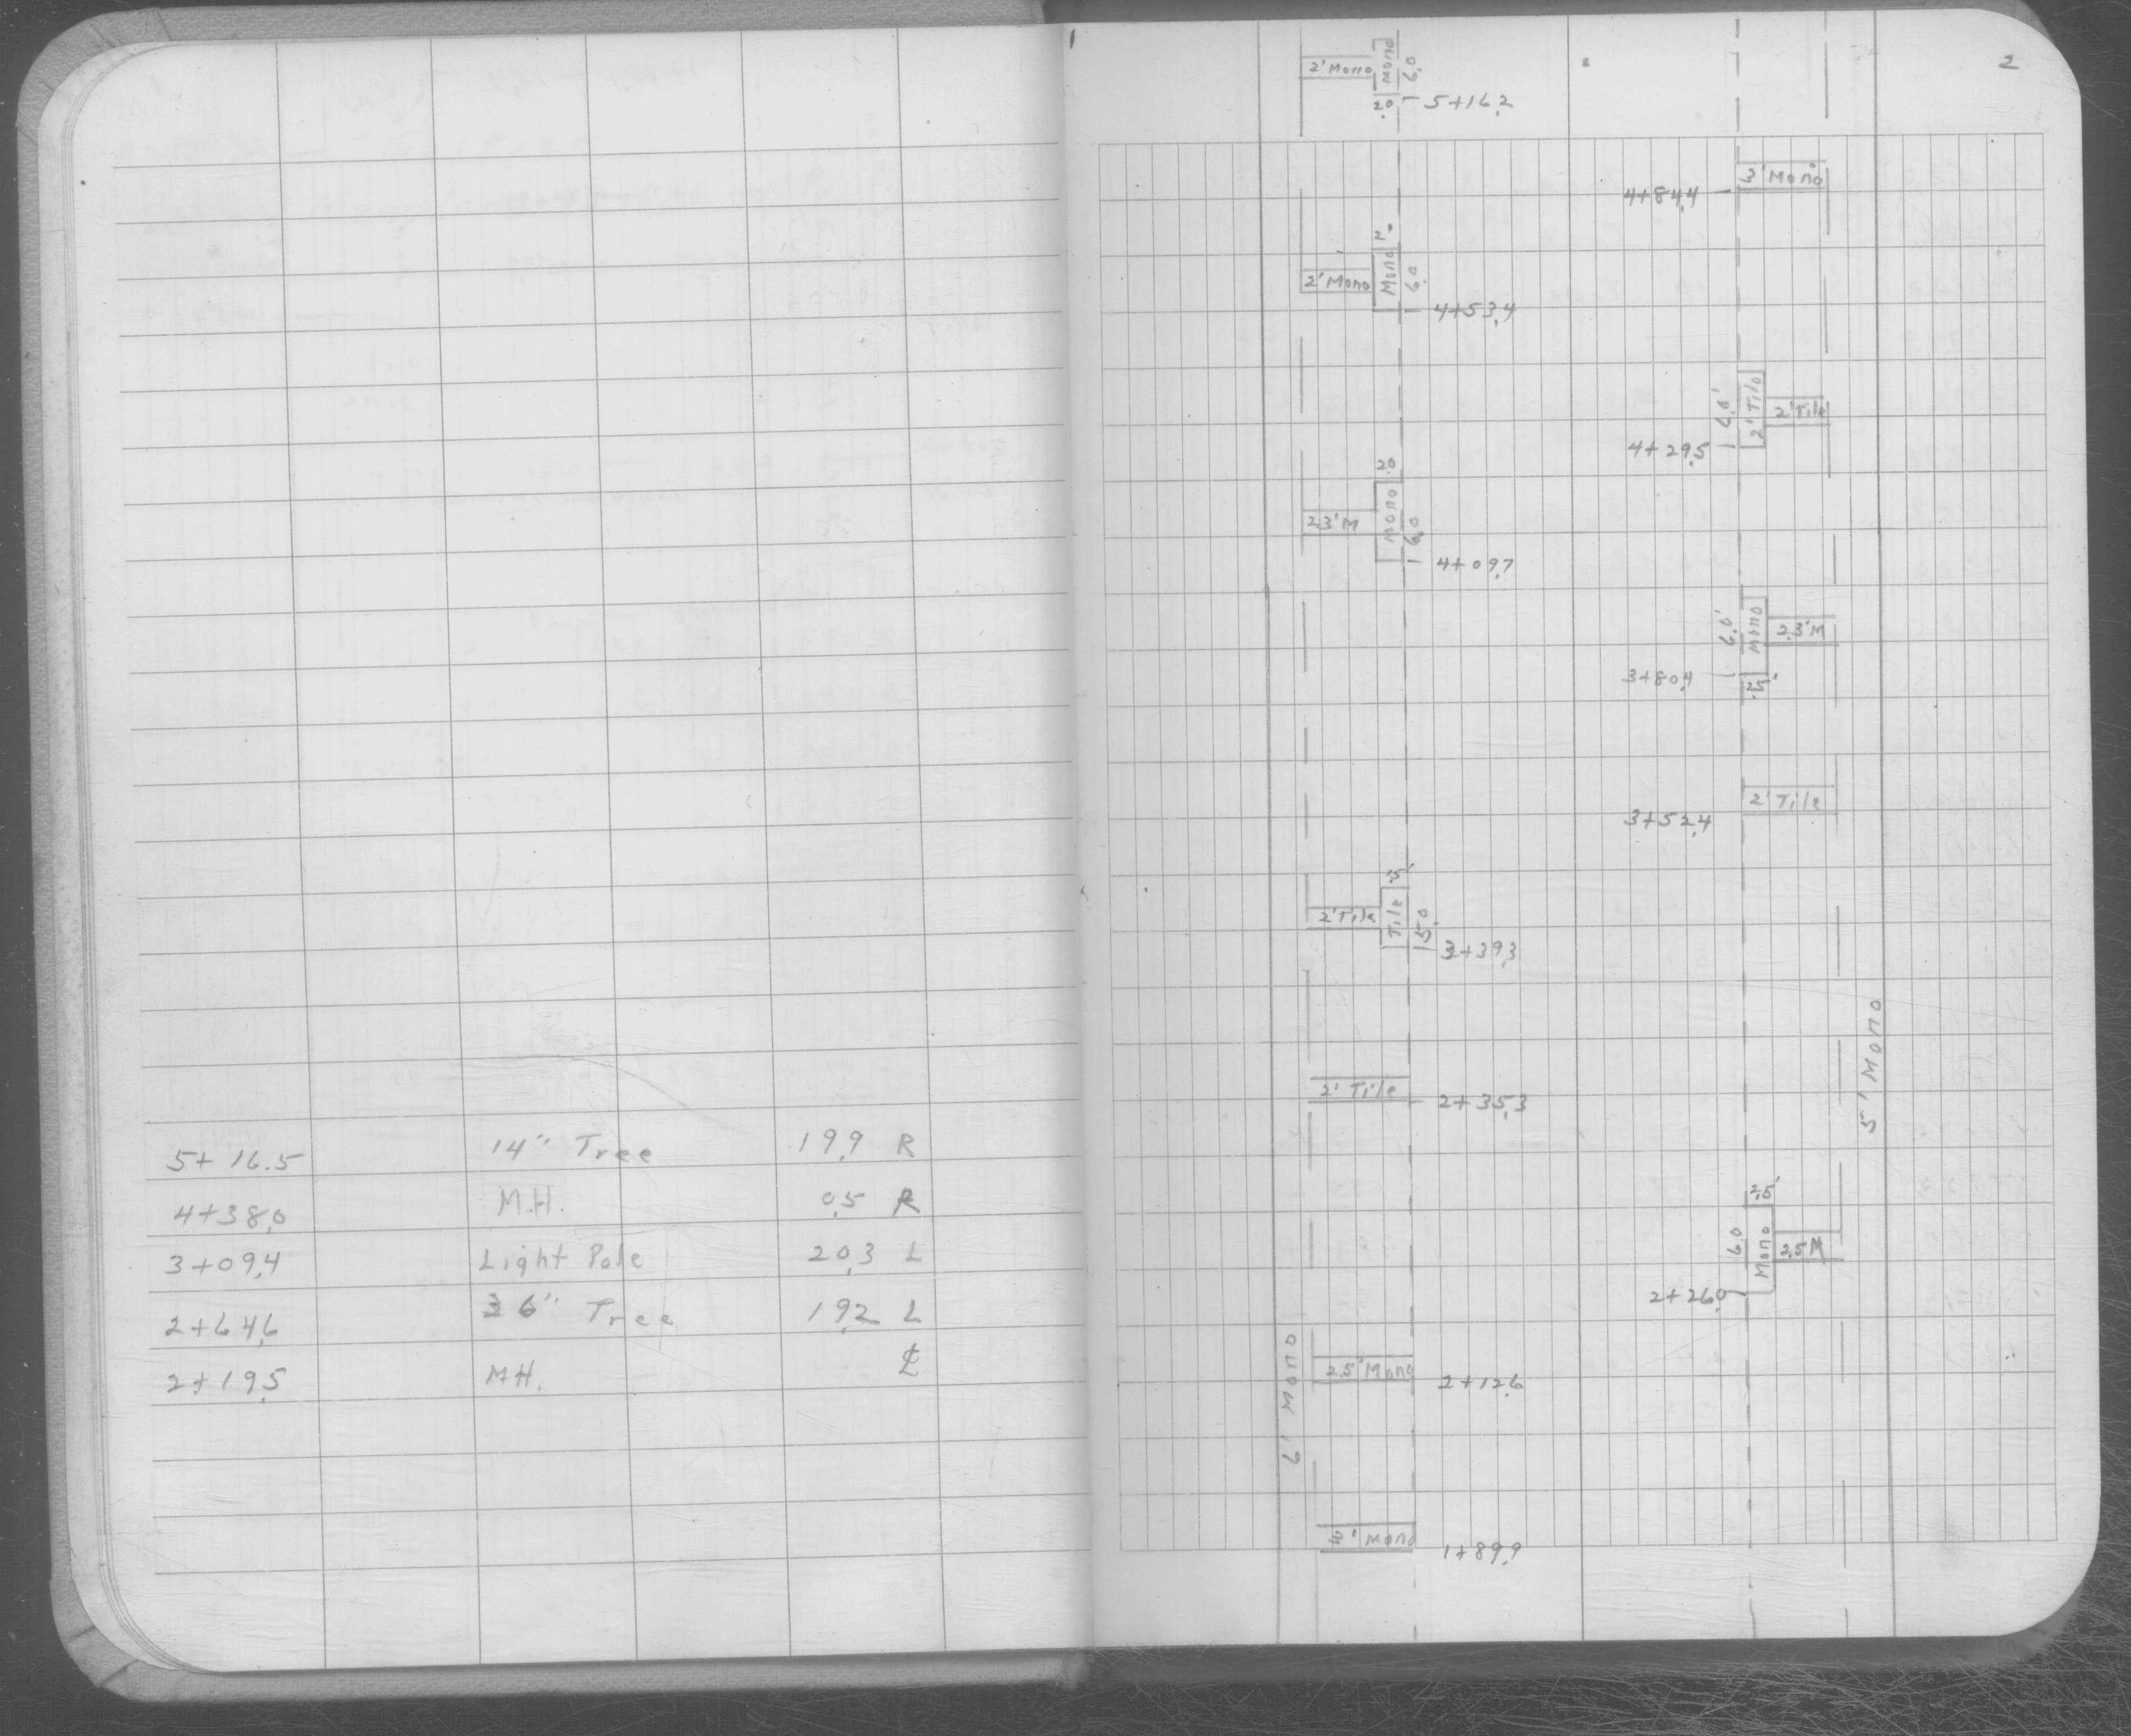 5+16.5 14" Tree 19.9 R
4+38.0 M.H. 0.5 R
3+09.4 Light Pole 20.3 L
2+64.6 36" Tree 19.2 L
2+19.5 M.H. ℄
2
2' Mono Mono 6.0
2.0 5+16.2
3' Mono
4+84.4
2'
2' Mono Mono 6.0
4+53.4
6.0' 2' Tile 2' Tile
4+29.5
2.0
2.3' M Mono 6.0
4+09.7
6.0' Mono 2.3' M
3+80.4 2.5'
2' Tile
3+52.4
2' Tile Tile 5.0
3+39.3
5' Mono
2' Tile 2+35.3
2.5'
6.0 Mono 2.5 M
2+26.0
6' Mono
2.5' Mono 2+12.6
2' Mono 1+89.9